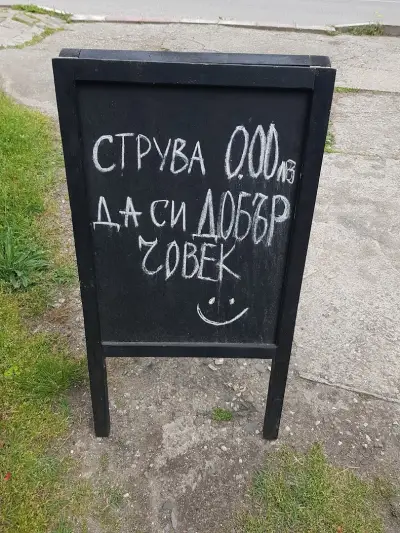 СТРУВА 0.00лв
ДА СИ ДОБЪР
ЧОВЕК